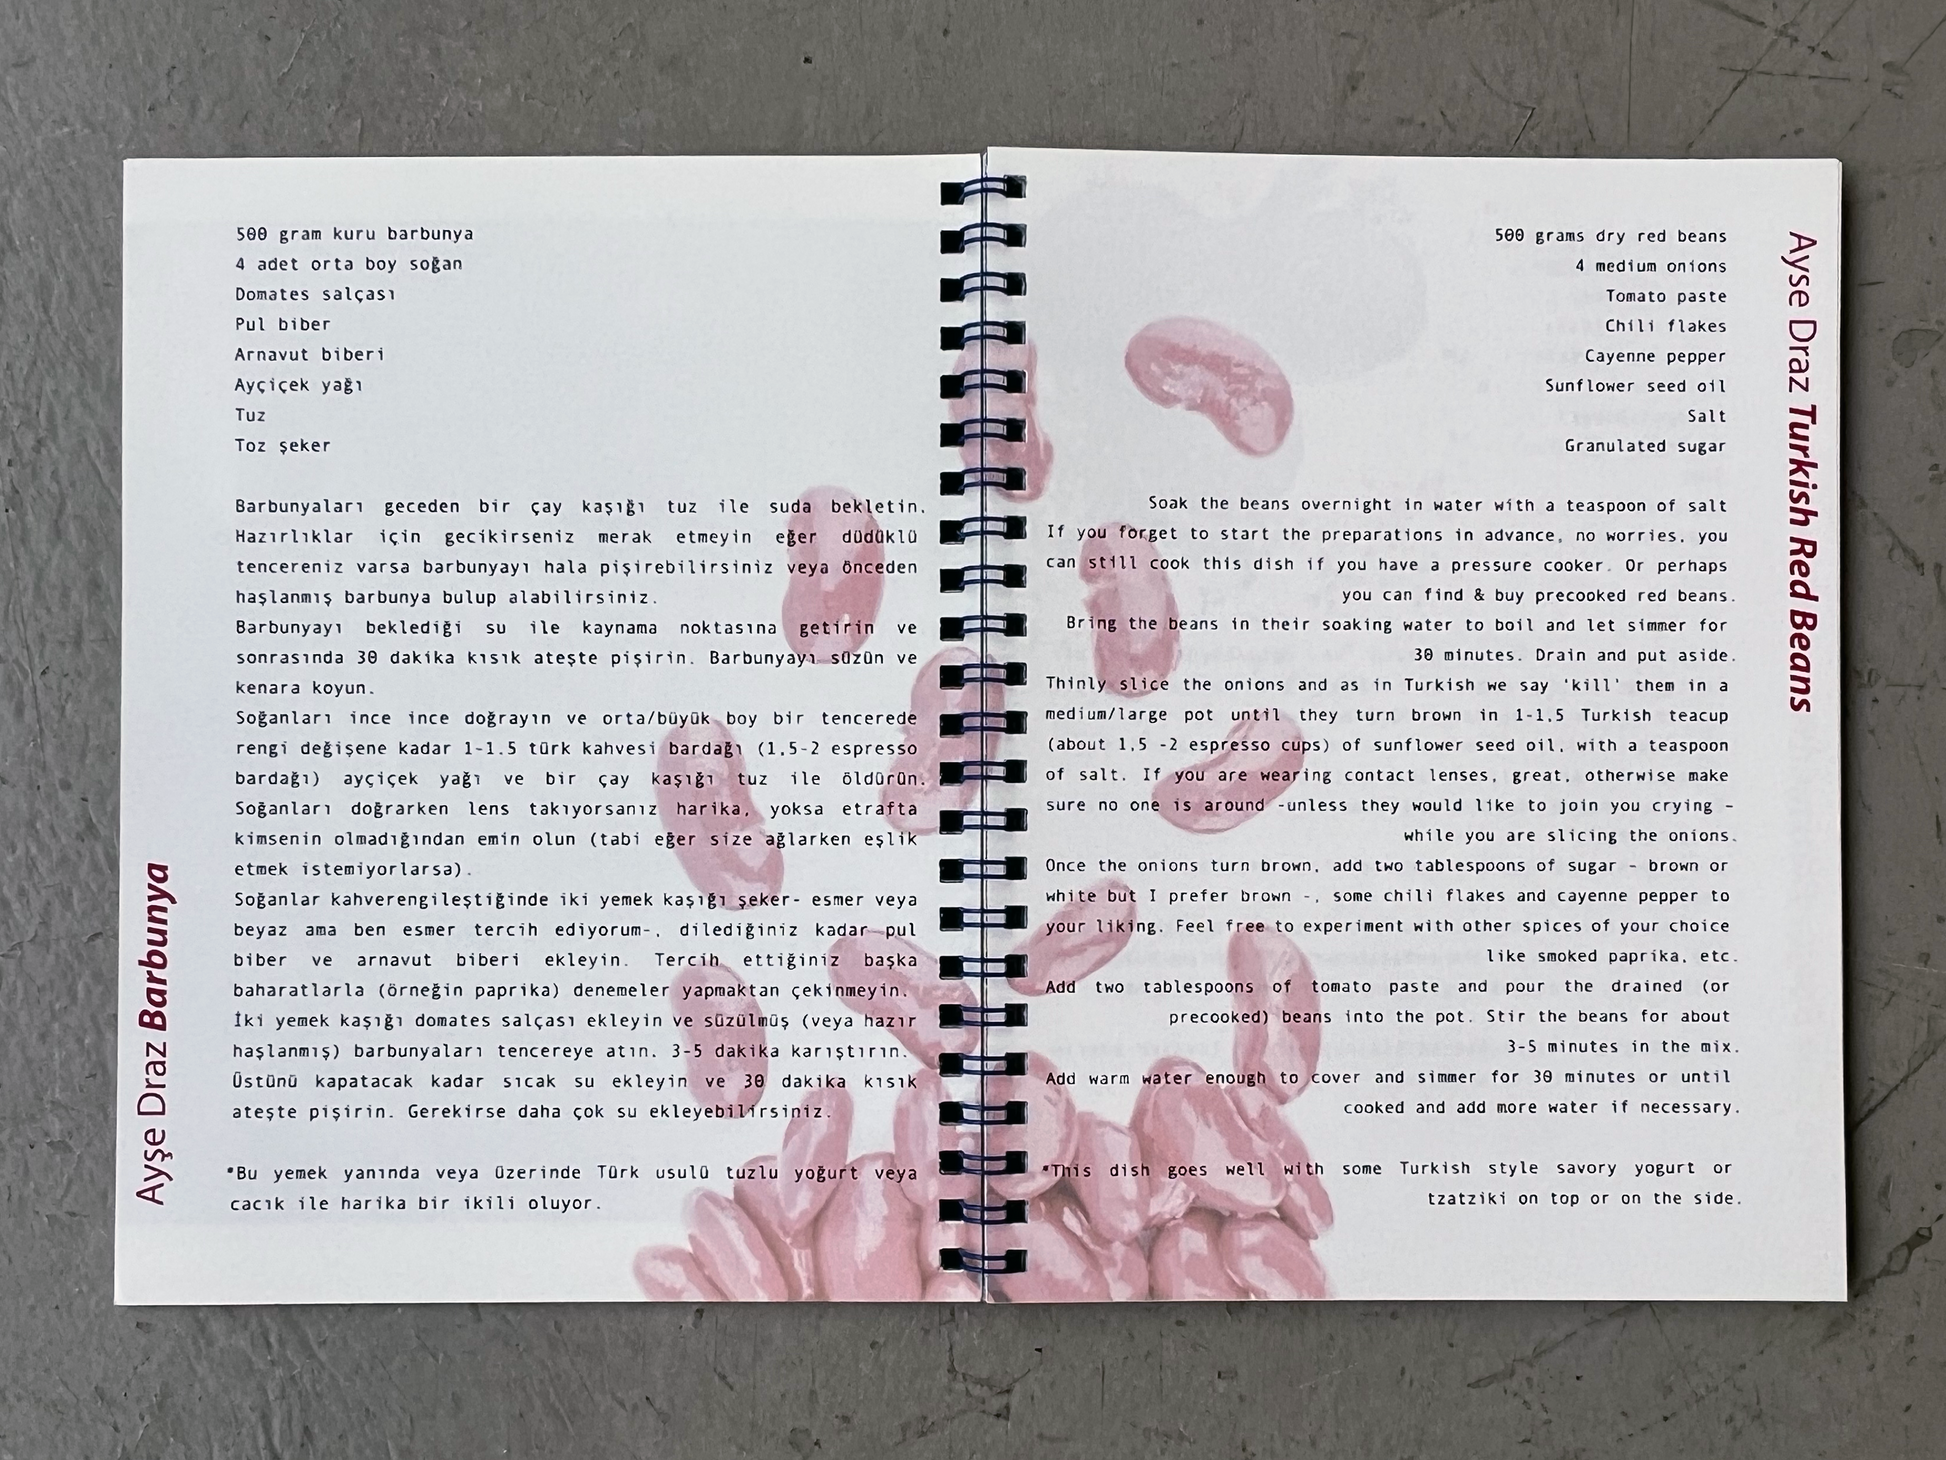 500 gram kuru barbunya
4 adet orta boy soğan
Domates salçası
Pul biber
Arnavut biberi
Ayçiçek yağı
Tuz
Toz şeker
Barbunyaları geceden bir çay kaşığı tuz ile suda bekletin.
Hazırlıklar için gecikirseniz merak etmeyin eğer düdüklü
tencereniz varsa barbunyayı hala pişirebilirsiniz veya önceden
haşlanmış barbunya bulup alabilirsiniz.
Barbunyayı beklediği su ile kaynama noktasına getirin ve
sonrasında 30 dakika kısık ateşte pişirin. Barbunyayı süzün ve
kenara koyun.
Soğanları ince ince doğrayın ve orta/büyük boy bir tencerede
rengi değişene kadar 1-1.5 türk kahvesi bardağı (1,5-2 espresso
bardağı) ayçiçek yağı ve bir çay kaşığı tuz ile öldürün.
Soğanları doğrarken lens takıyorsanız harika, yoksa etrafta
kimsenin olmadığından emin olun (tabi eğer size ağlarken eşlik
etmek istemiyorlarsa).
Soğanlar kahverengileştiğinde iki yemek kaşığı şeker- esmer veya
beyaz ama ben esmer tercih ediyorum-, dilediğiniz kadar pul
biber ve arnavut biberi ekleyin. Tercih ettiğiniz başka
baharatlarla (örneğin paprika) denemeler yapmaktan çekinmeyin.
İki yemek kaşığı domates salçası ekleyin ve süzülmüş (veya hazır
haşlanmış) barbunyaları tencereye atın. 3-5 dakika karıştırın.
Üstünü kapatacak kadar sıcak su ekleyin ve 30 dakika kısık
ateşte pişirin. Gerekirse daha çok su ekleyebilirsiniz.
*Bu yemek yanında veya üzerinde Türk usulü tuzlu yoğurt veya
cacık ile harika bir ikili oluyor.
Ayşe Draz Barbunya
500 grams dry red beans
4 medium onions
Tomato paste
Chili flakes
Cayenne pepper
Sunflower seed oil
Salt
Granulated sugar
Soak the beans overnight in water with a teaspoon of salt
If you forget to start the preparations in advance, no worries, you
can still cook this dish if you have a pressure cooker. Or perhaps
you can find & buy precooked red beans.
Bring the beans in their soaking water to boil and let simmer for
30 minutes. Drain and put aside.
Thinly slice the onions and as in Turkish we say 'kill' them in a
medium/large pot until they turn brown in 1-1,5 Turkish teacup
(about 1,5 -2 espresso cups) of sunflower seed oil, with a teaspoon
of salt. If you are wearing contact lenses, great, otherwise make
sure no one is around -unless they would like to join you crying -
while you are slicing the onions.
Once the onions turn brown, add two tablespoons of sugar - brown or
white but I prefer brown -, some chili flakes and cayenne pepper to
your liking. Feel free to experiment with other spices of your choice
like smoked paprika, etc.
Add two tablespoons of tomato paste and pour the drained (or
precooked) beans into the pot. Stir the beans for about
3-5 minutes in the mix.
Add warm water enough to cover and simmer for 30 minutes or until
cooked and add more water if necessary.
*This dish goes well with some Turkish style savory yogurt or
tzatziki on top or on the side.
Ayse Draz Turkish Red Beans